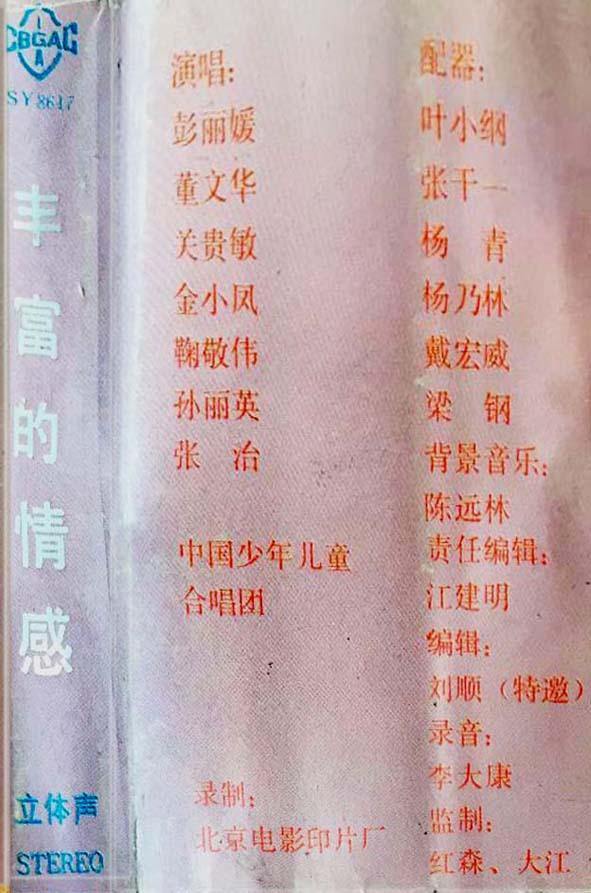 CBGAC
SY8617
丰富的情感
立体声
STEREO
演唱:
彭丽媛
董文华
关贵敏
金小凤
鞠敬伟
孙丽英
张 冶
中国少年儿童
合唱团
录制:
北京电影印片厂
配器:
叶小纲
张千一
杨 青
杨乃林
戴宏威
梁 钢
背景音乐:
陈远林
责任编辑:
江建明
编辑:
刘顺（特邀）
录音:
李大康
监制:
红森、大江